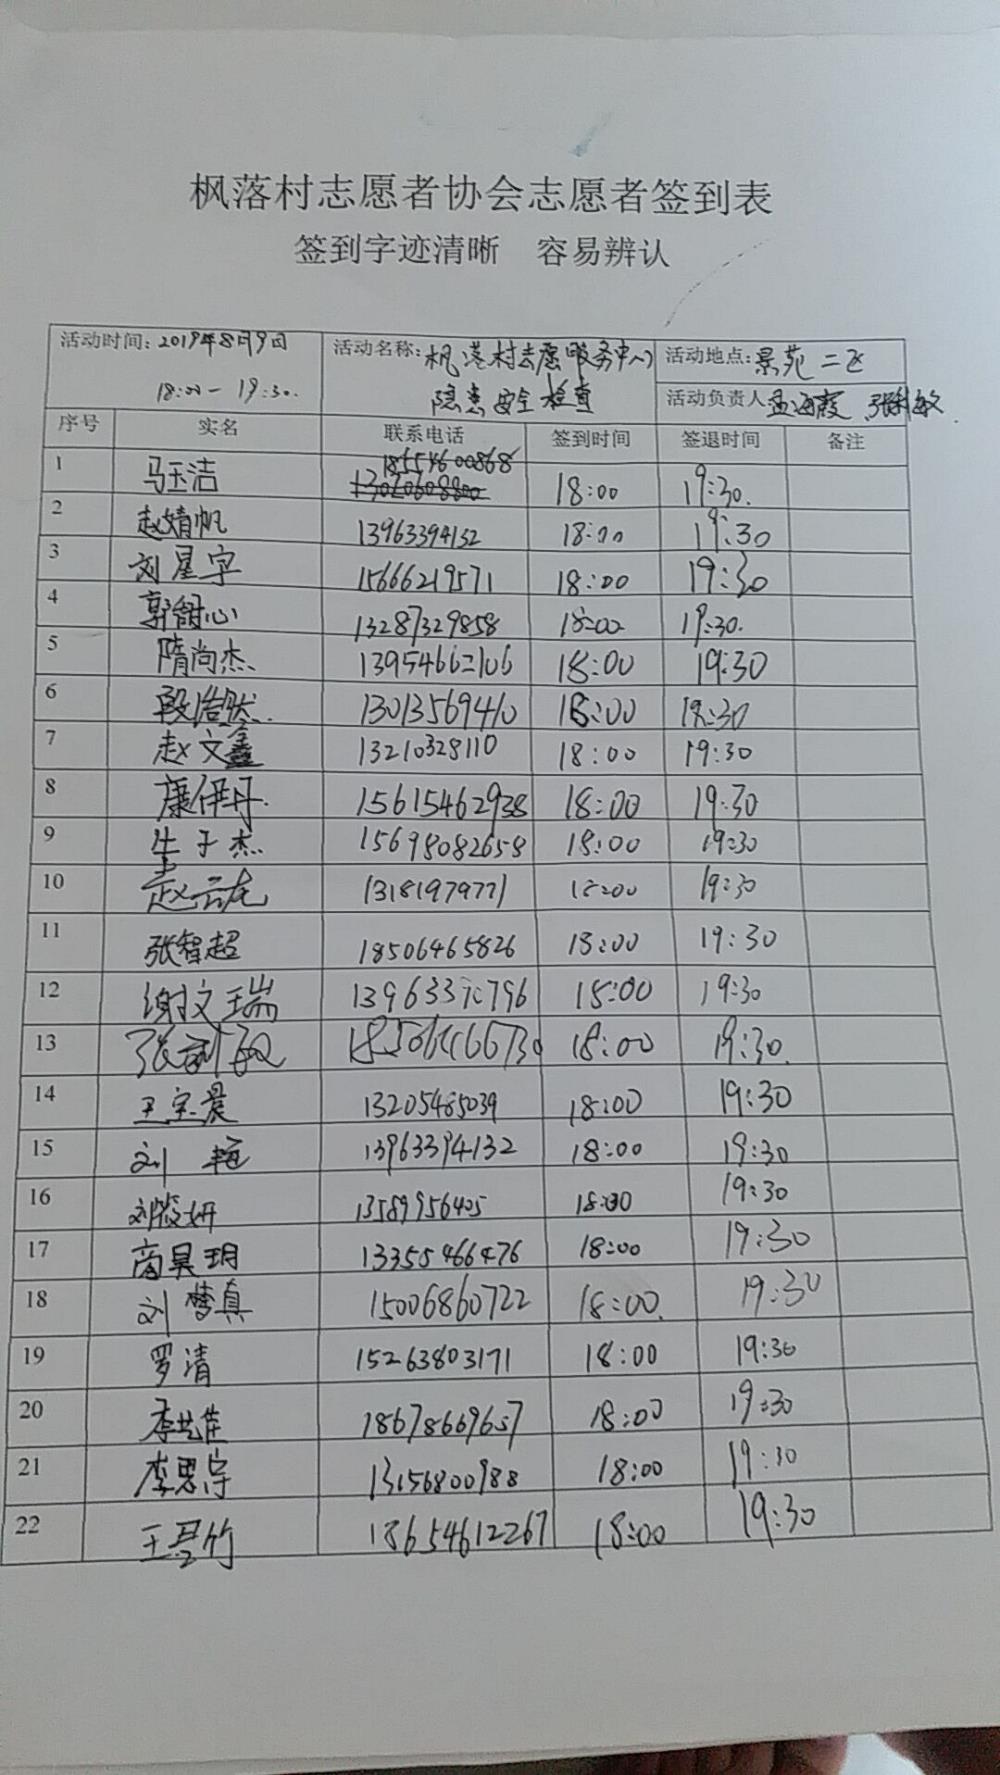 枫落村志愿者协会志愿者签到表
签到字迹清晰 容易辨认
活动时间：2019年8月9日 18:00-19:30.
活动名称：枫落村志愿服务中心 隐患安全检查
活动地点：景苑二区
活动负责人 孟海霞 张利敏
序号 实名 联系电话 签到时间 签退时间 备注
1 马玉洁 18554600868 18:00 19:30.
2 赵婧帆 13963394132 18:00 19:30
3 刘星宇 15666219571 18:00 19:30
4 郭甜心 13287329858 18:00 19:30.
5 隋尚杰 13954662106 18:00 19:30
6 段浩然 13013569410 18:00 18:30
7 赵文鑫 13210328110 18:00 19:30
8 康伊丹 15615462938 18:00 19:30
9 牛子杰 15698082658 18:00 19:30
10 赵云龙 13181979771 18:00 19:30
11 张智超 18506465826 18:00 19:30
12 谢文瑞 18:00 19:30
13 张利敏 18:00 19:30.
14 王宝晨 13205485039 18:00 19:30
15 刘艳 13963394132 18:00 19:30
16 刘筱妍 13589956405 18:00 19:30
17 商昊玥 13355466476 18:00 19:30
18 刘梦真 15006860722 18:00 19:30
19 罗清 15263803171 18:00 19:30
20 李艺佳 18678669657 18:00 19:30
21 李思宇 13156800988 18:00 19:30
22 王昱竹 18654612267 18:00 19:30